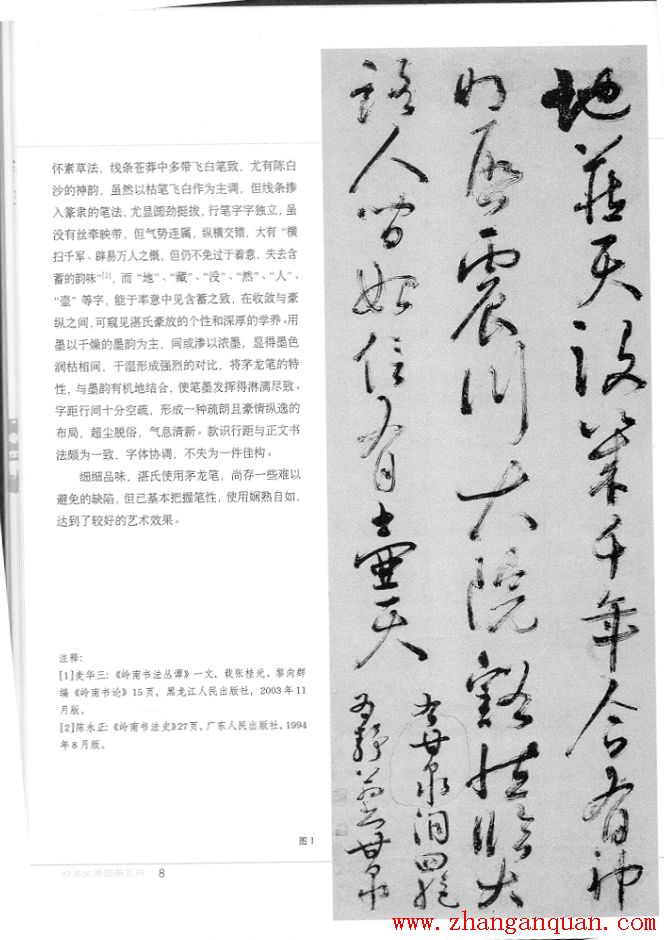 怀素草法，线条苍莽中多带飞白笔致，尤有陈白
沙的神韵，虽然以枯笔飞白作为主调，但线条掺
入篆隶的笔法，尤显圆劲挺拔，行笔字字独立，虽
没有丝牵映带，但气势连属，纵横交错，大有“横
扫千军、辟易万人之概，但仍不免过于着意，失去含
蓄的韵味”[2]，而“地”、“藏”、“没”、“然”、“人”、
“壶”等字，能于率意中见含蓄之致，在收敛与豪
纵之间，可窥见湛氏豪放的个性和深厚的学养。用
墨以干燥的墨韵为主，间或渗以浓墨，显得墨色
润枯相间，干湿形成强烈的对比，将茅龙笔的特
性，与墨韵有机地结合，使笔墨发挥得淋漓尽致。
字距行间十分空疏，形成一种疏朗且豪情纵逸的
布局，超尘脱俗，气息清新。款识行距与正文书
法颇为一致，字体协调，不失为一件佳构。
细细品味，湛氏使用茅龙笔，尚存一些难以
避免的缺陷，但已基本把握笔性，使用娴熟自如，
达到了较好的艺术效果。
注释：
[1]麦华三：《岭南书法丛谭》一文，载张桂光、黎向群
编《岭南书论》15页，黑龙江人民出版社，2003年11
月版。
[2]陈永正：《岭南书法史》27页，广东人民出版社，1994
年8月版。
图1
8
地藏天设几千年 合有神
震川大院豁 大
路人间始信有壶天
甘泉洞
甘泉
www.zhanganquan.com